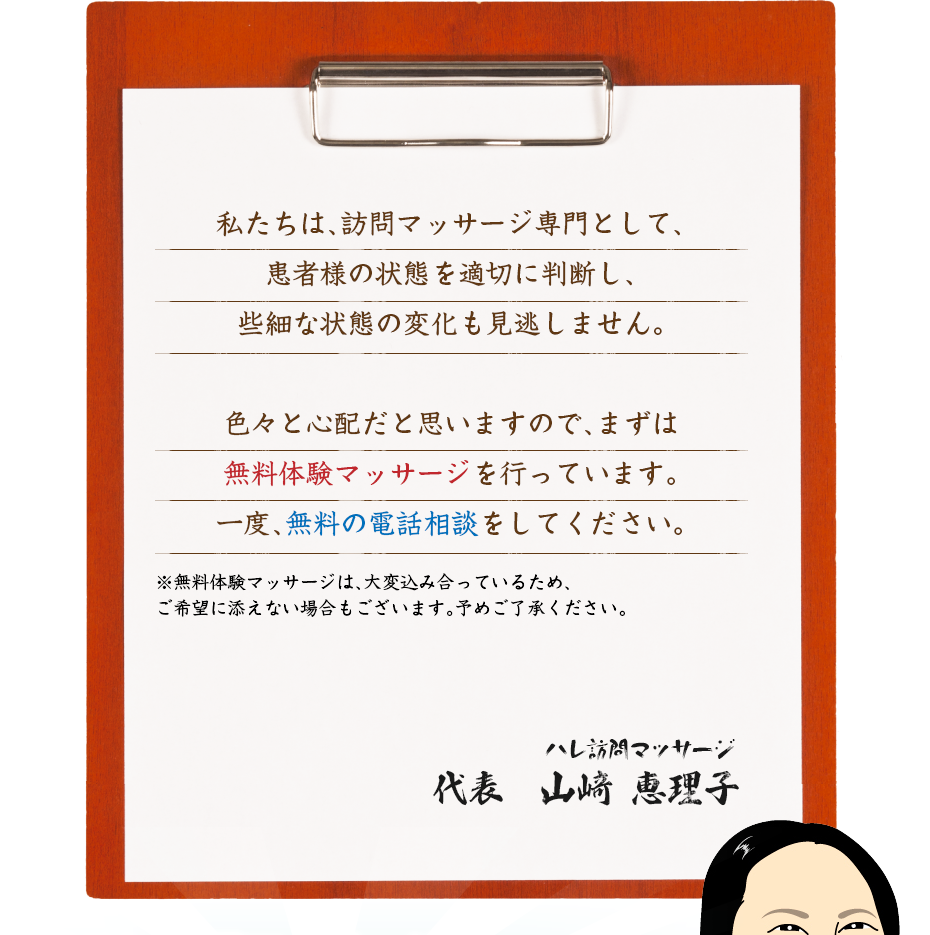 私たちは、訪問マッサージ専門として、
患者様の状態を適切に判断し、
些細な状態の変化も見逃しません。
色々と心配だと思いますので、まずは
無料体験マッサージを行っています。
一度、無料の電話相談をしてください。
※無料体験マッサージは、大変込み合っているため、
ご希望に添えない場合もございます。予めご了承ください。
ハレ訪問マッサージ
代表 山﨑 恵理子